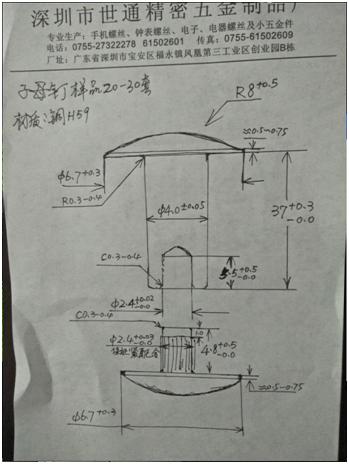 深圳市世通精密五金制品厂
专业生产：手机螺丝、钟表螺丝、电子、电器螺丝及小五金件
电话：0755-27322278 61502601 传真：0755-61502609
厂址：广东省深圳市宝安区福永镇凤凰第三工业区创业园B栋
子母钉样品20-30套
材质：铜H59
R8+0.5
≈0.5-0.75
Φ6.7+0.3
R0.3-0.4
Φ4.0±0.05
37+0.3-0.0
C0.3-0.4
5.5+0.5-0.0
Φ2.4+0.02-0.0
C0.3-0.4
Φ2.4+0.03-0.0
1.0
紧配合
4.8+0.5-0.0
≈0.5-0.75
Φ6.7+0.3